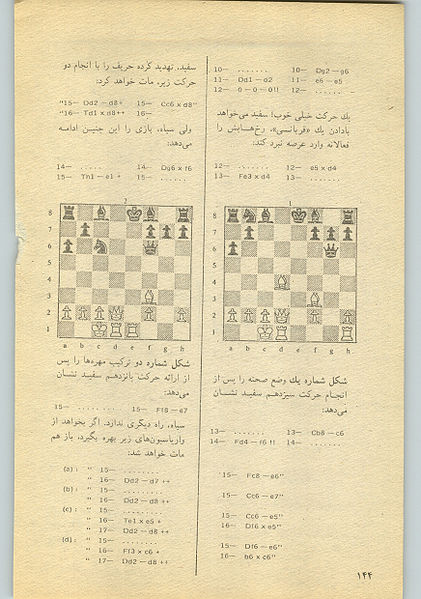 10— ....... 10— Dg2 — g6
11— Dd1 — d2 11— e6 — e5
12— 0 — 0 — 0!! 12— ....... .
یك حرکت خیلی خوب! سفید می‌خواهد
بادادن یك «قربانسی»، رخ‌هـایش را
فعالانه وارد عرصه نبرد کند:
12— ....... 12— e5 x d4
13— Fe3 x d4 13— .......
1
8
7
6
5
4
3
2
1
a b c d e f g h
شکل شماره یك وضع صحنه را پس از
انجام حرکت سیزدهم سفیـد نشـان
می‌دهد:
13— ....... 13— Cb8 — c6
14— Fd4 — f6 !! 14— .......
سفید، تهدید کرده حریف را با انجام دو
حرکت زیر، مات خواهد کرد:
"15— Dd2 — d8 + 15— Cc6 x d8"
"16— Td1 x d8++ 16—
ولی سیاه، بازی را این چنیـن ادامـه
می‌دهد:
14— ..... 14— Dg6 x f6
15— Th1 — e1 + 15— ......
2
8
7
6
5
4
3
2
1
a b c d e f g h
شکل شماره دو ترکیب مهره‌ها را پس
از ارائه حرکت پانزدهم سفیـد نشـان
می‌دهد:
15— ....... 15— Ff8 — e7
سیاه، راه دیگری ندارد. اگر بخواهد از
واریاسیون‌های زیر بهره بگیرد، باز هم
مات خواهد شد:
(a) : " 15— ......... 15— Fc8 — e6"
" 16— Dd2 — d7 ++
(b) : " 15— ......... 15— Cc6 — e7"
" 16— Dd2 — d8 ++
(c) : " 15— ......... 15— Cc6 — e5"
" 16— Te1 x e5 + 16— Df6 x e5"
" 17— Dd2 — d8 ++
(d) : " 15— ......... 15— Df6 — e6"
" 16— Ff3 x c6 + 16— b6 x c6"
" 17— Dd2 — d8 ++
۱۴۴